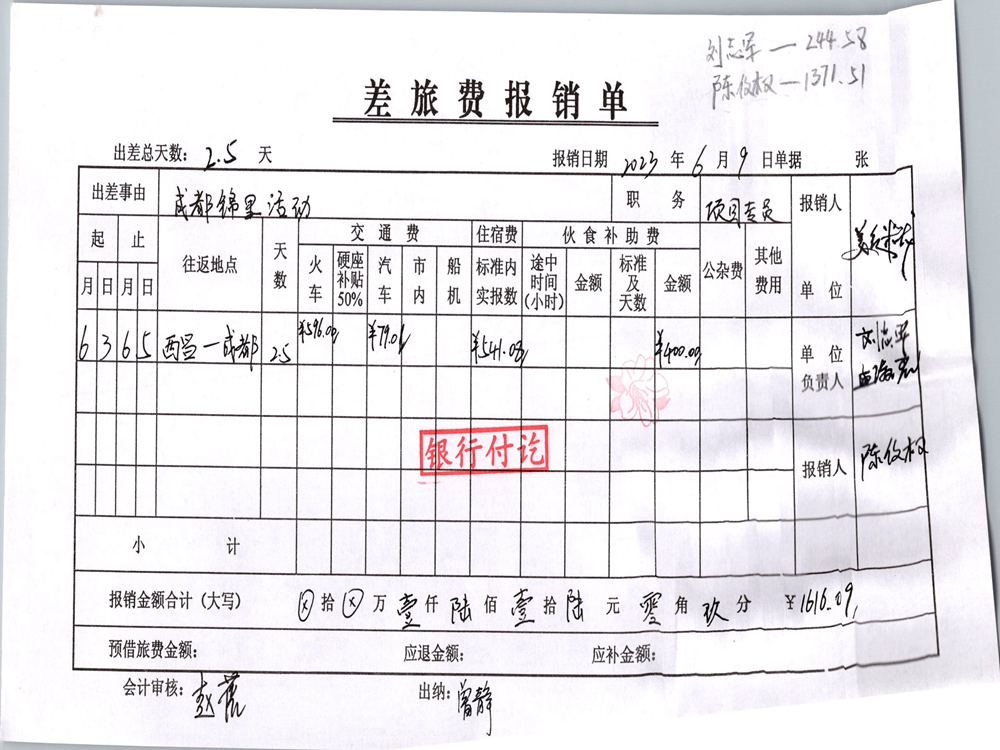 刘志军 — 244.58
陈仪权 — 1371.51
差旅费报销单
出差总天数: 2.5 天 报销日期 2023 年 6 月 9 日 单据 张
出差事由 成都锦里活动 职务 项目专员 报销人
起 止 往返地点 天数 交通费 住宿费 伙食补助费 公杂费 其他费用
月 日 月 日 火车 硬座补贴50% 汽车 市内 船机 标准内实报数 途中时间(小时) 金额 标准及天数 金额 单位
6 3 6 5 西昌—成都 2.5 ¥596.00 ¥79.01 ¥541.08 ¥400.00 单位负责人 刘志军
银行付讫
报销人 陈仪权
小计
报销金额合计(大写) ⊗ 拾 ⊗ 万 壹 仟 陆 佰 壹 拾 陆 元 零 角 玖 分 ¥1616.09
预借旅费金额: 应退金额: 应补金额:
会计审核: 出纳: 曾静